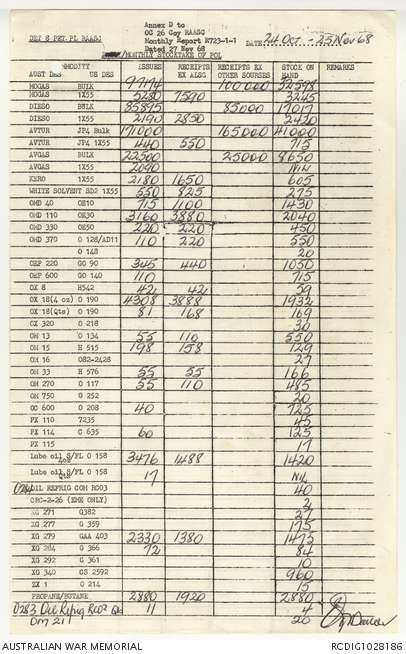 DET 8 PET PL RAASC
Annex D to
OC 26 Coy RAASC
Monthly Report R723-1-1
Dated 27 Nov 68
DATE 24 Oct - 25 Nov 68
MONTHLY STOCKTAKE OF POL
COMMODITY ISSUES RECEIPTS RECEIPTS EX STOCK ON REMARKS
AUST Des US DES EX ALSG OTHER SOURSES HAND
MOGAS BULK 100000 32598
MOGAS 1X55 5280 7590 3245
DIESO BULK 35895 85000 17017
DIESO 1X55 2190 2850 2420
AVTUR JP4 Bulk 171000 165000 41000
AVTUR JP4 1X55 440 550 715
AVGAS BULK 22500 25000 8650
AVGAS 1X55 2090 NIL
KERO 1X55 2180 1650 605
WHITE SOLVENT SD2 1X55 550 825 275
OMD 40 OE10 715 1100 1430
OMD 110 OE30 3160 3880 2040
OMD 330 OE50 220 220 450
OMD 370 O 128/AD11 110 220 550
O 148 20
OEP 220 GO 90 345 440 1050
OMP 600 GO 140 110 715
OX 8 H542 42 42 59
OX 18(4 oz) O 190 4308 3888 1932
OX 18(Qts) O 190 81 168 169
OX 320 O 218 30
OM 13 O 134 55 110 550
OM 15 H 515 198 158 129
OM 16 082-2428 27
OM 33 H 576 55 55 166
OM 270 O 117 55 110 485
OM 750 O 252 20
OC 600 O 208 40 725
PX 110 7235 45
PX 114 C 635 60 125
PX 115 17
Lube oil S/FL O 158 3476 1488 1420
Lube oil S/FL O 158 17 NIL
Qts
OIL REFRIG COM RCO3 40
CRC-2-26 (EME ONLY) 2
XG 271 G382 27
XG 277 G 359 175
XG 279 GAA 403 2330 1380 1475
XG 284 G 366 72 84
XG 292 G 361 10
XG 340 CS 2592 960
ZX 1 O 214 15
PROPANE/BUTANE 2880 1920 2880
0283 Oil Refrig RCO2 Qts 11 4
OM 211 20
AUSTRALIAN WAR MEMORIAL RCDIG1028186